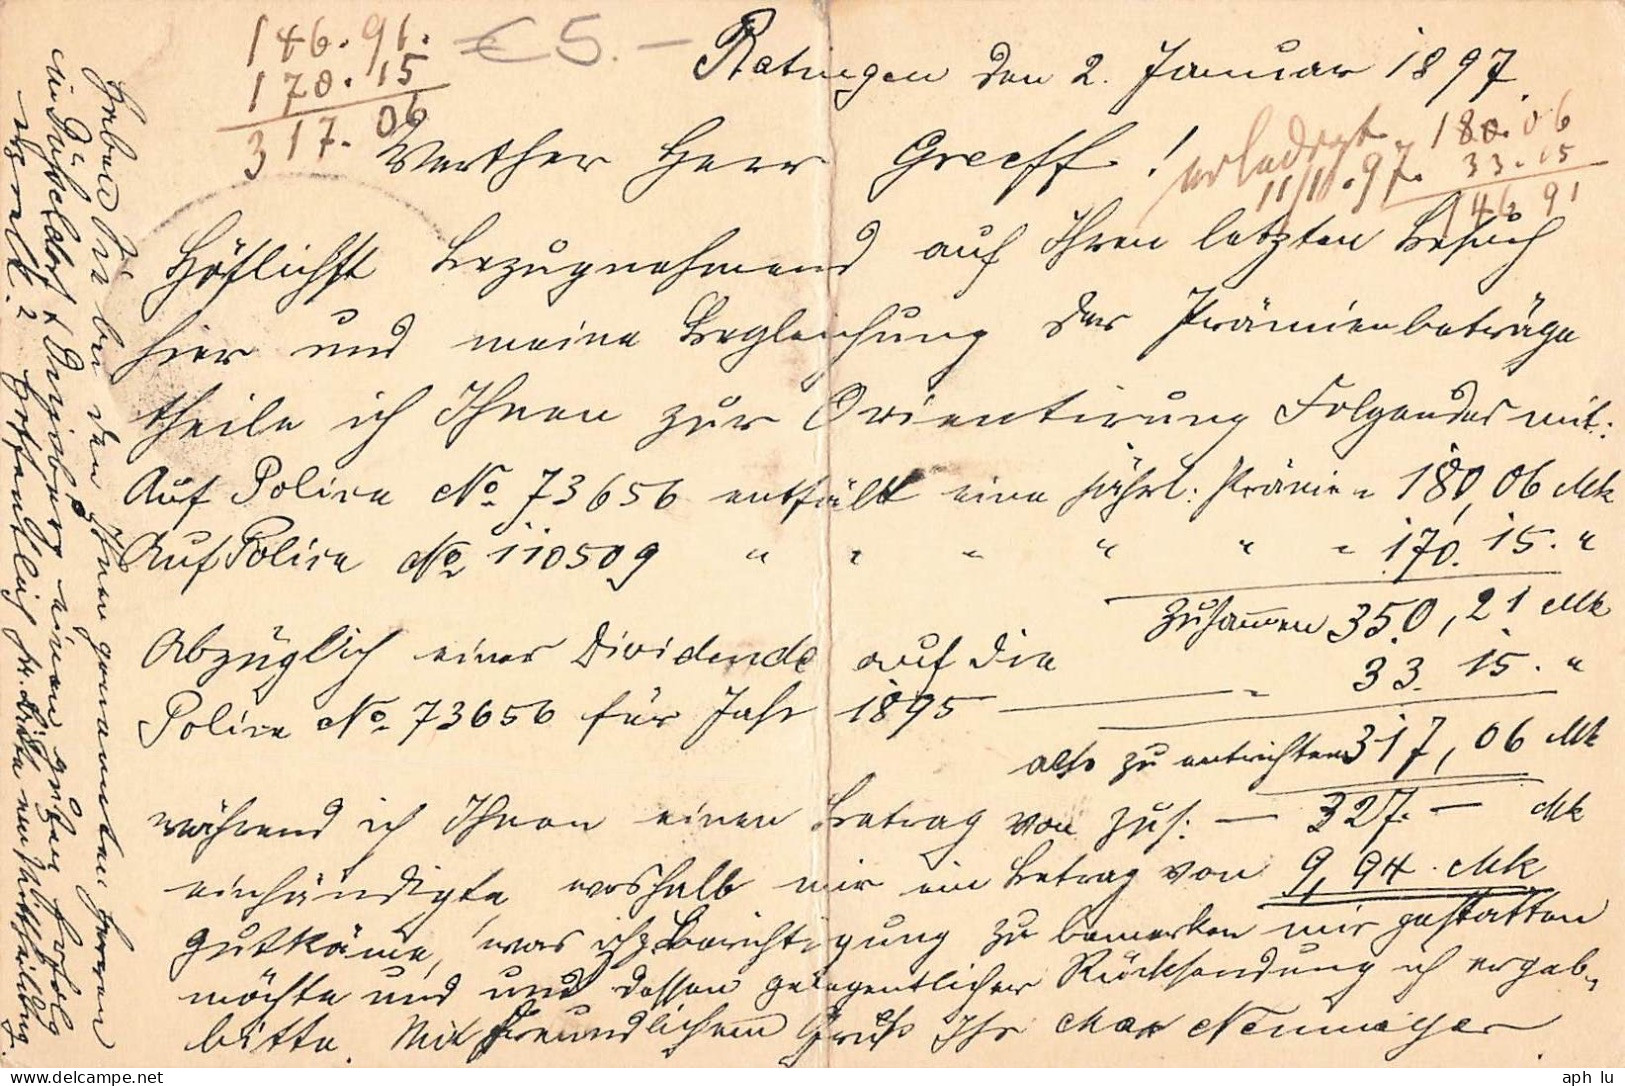 146. 91.
170. 15
317. 06
€ 5. —
Ratingen den 2. Januar 1897.
erledigt
11/1. 97.
180. 06
33. 15
146 91
Werther Herr Greeff!
Höflichst bezugnehmend auf Ihren letzten Besuch
hier und meine Begleichung der Prämienbeträge
theile ich Ihnen zur Orientirung Folgendes mit:
Auf Police No. 73656 entfällt eine jährl: Prämie = 180,06 Mk
Auf Police No 110509 " " " " " = 170. 15. "
zusammen 350,21 Mk
Abzüglich einer Dividende auf die
Police No. 73656 für Jahr 1895 — " 33. 15. "
also zu entrichten 317,06 Mk
während ich Ihnen einen Betrag von zus: — 327. — Mk
einhändigte, weshalb mir ein Betrag von 9,94. Mk
gutkäme, was ich z. Berichtigung zu bemerken mir gestatten
möchte und um dessen gelegentlicher Rücksendung ich ergeb.
bitte. Mit freundlichem Gruß Ihr Max Neumeyer.
Haben Sie bei den Ihnen genannten Herren
in Düsseldorf & Duisburg einen guten Erfolg
erzielt? Hoffentlich frdl. bitte um Mittheilung.
aph lu